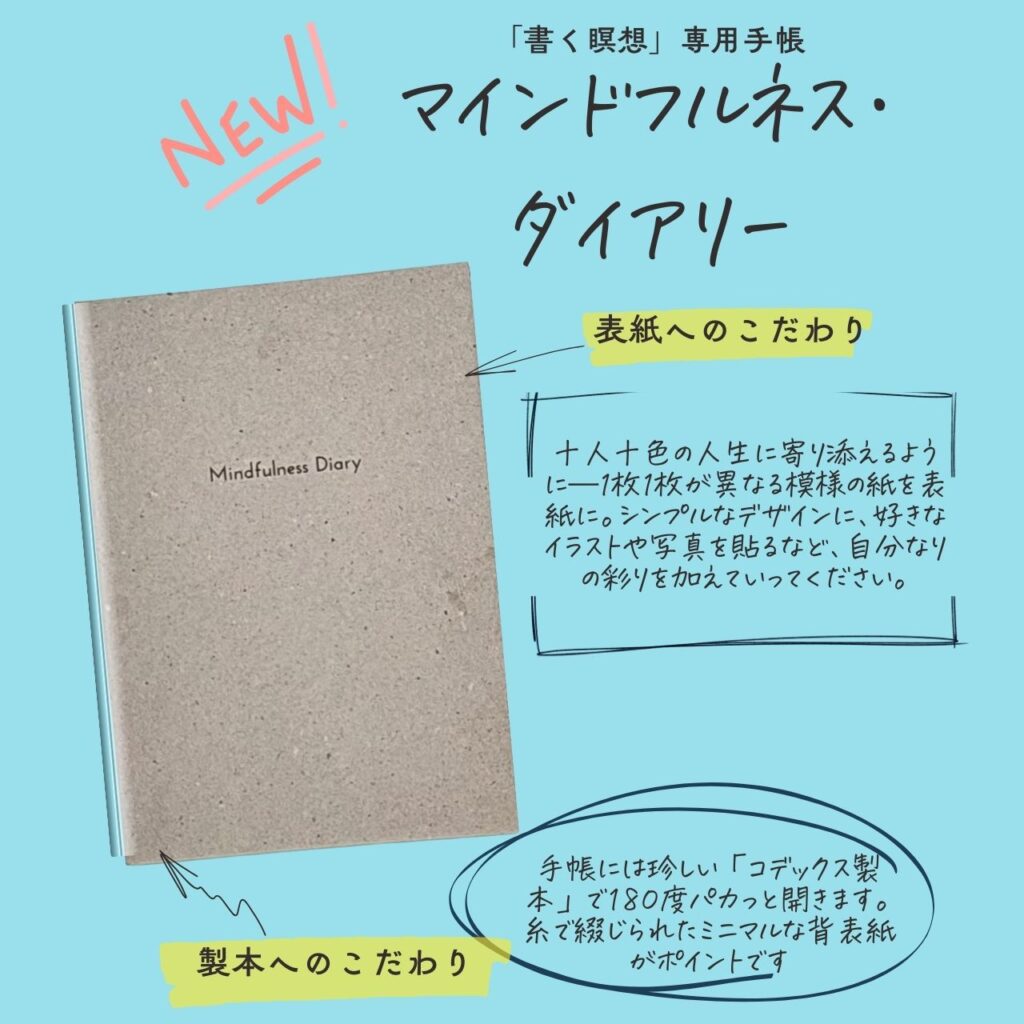 NEW!
「書く瞑想」専用手帳
マインドフルネス・
ダイアリー
表紙へのこだわり
Mindfulness Diary
十人十色の人生に寄り添えるよう
に―1枚1枚が異なる模様の紙を表
紙に。シンプルなデザインに、好きな
イラストや写真を貼るなど、自分なり
の彩りを加えていってください。
手帳には珍しい「コデックス製
本」で180度パカっと開きます。
糸で綴じられたミニマルな背表紙
がポイントです
製本へのこだわり